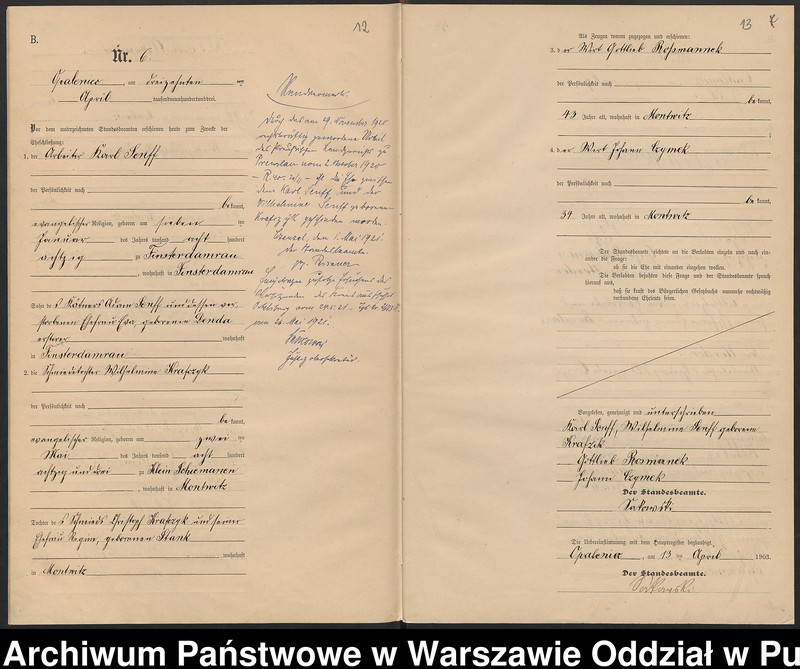 12
B.
Nr. 6
Opaleniec, am dreizehnten ten
April tausendneunhundertunddrei.
Vor dem unterzeichneten Standesbeamten erschienen heute zum Zwecke der
Eheschließung:
1. der Arbeiter Karl Senff
der Persönlichkeit nach
be kannt,
evangelischer Religion, geboren am sieben ten
Januar des Jahres tausend acht hundert
achtzig zu Finsterdamrau
, wohnhaft in Finsterdamrau
Sohn des Kätners Adam Senff und dessen ver-
storbenen Ehefrau Eva, geborenen
ersterer wohnhaft
in Finsterdamrau
2. die Schmiedetochter Wilhelmine Krafczyk
der Persönlichkeit nach
be kannt,
evangelischer Religion, geboren am zwei ten
Mai des Jahres tausend acht hundert
achtzig und drei zu Klein Schiemanen
, wohnhaft in Montwitz
Tochter des Schmieds Christoph Krafczyk und seiner
Ehefrau Regine, geborenen
wohnhaft
in Montwitz
Durch das am 19. November 1920
rechtskräftig gewordene Urteil
des Preußischen Landgerichts zu
Prenzlau vom 2. Oktober 1920
ist die Ehe zwischen
dem Karl Senff und der
Wilhelmine Senff geborenen
Krafczyk geschieden worden.
, den 1. Mai 1921.
Der Standesbeamte.
gez.
am 26. Mai 1921.
13
Als Zeugen waren zugezogen und erschienen:
3. der Wirt Gottlieb Roßmannek
der Persönlichkeit nach
be kannt,
43 Jahre alt, wohnhaft in Montwitz
4. der Wirt Johann Czymek
der Persönlichkeit nach
be kannt,
34 Jahre alt, wohnhaft in Montwitz
Der Standesbeamte richtete an die Verlobten einzeln und nach ein-
ander die Frage:
ob sie die Ehe mit einander eingehen wollen.
Die Verlobten bejahten diese Frage und der Standesbeamte sprach
hierauf aus,
daß sie kraft des Bürgerlichen Gesetzbuchs nunmehr rechtmäßig
verbundene Eheleute seien.
Vorgelesen, genehmigt und unterschrieben
Karl Senff, Wilhelmine Senff geborene
Krafczik
Gottlieb Rosmanek
Johann Czymek
Der Standesbeamte.
Sakowski
Die Uebereinstimmung mit dem Hauptregister beglaubigt
Opaleniec, am 13 ten April 1903.
Der Standesbeamte.
Sakowski
Archiwum Państwowe w Warszawie Oddział w Pu